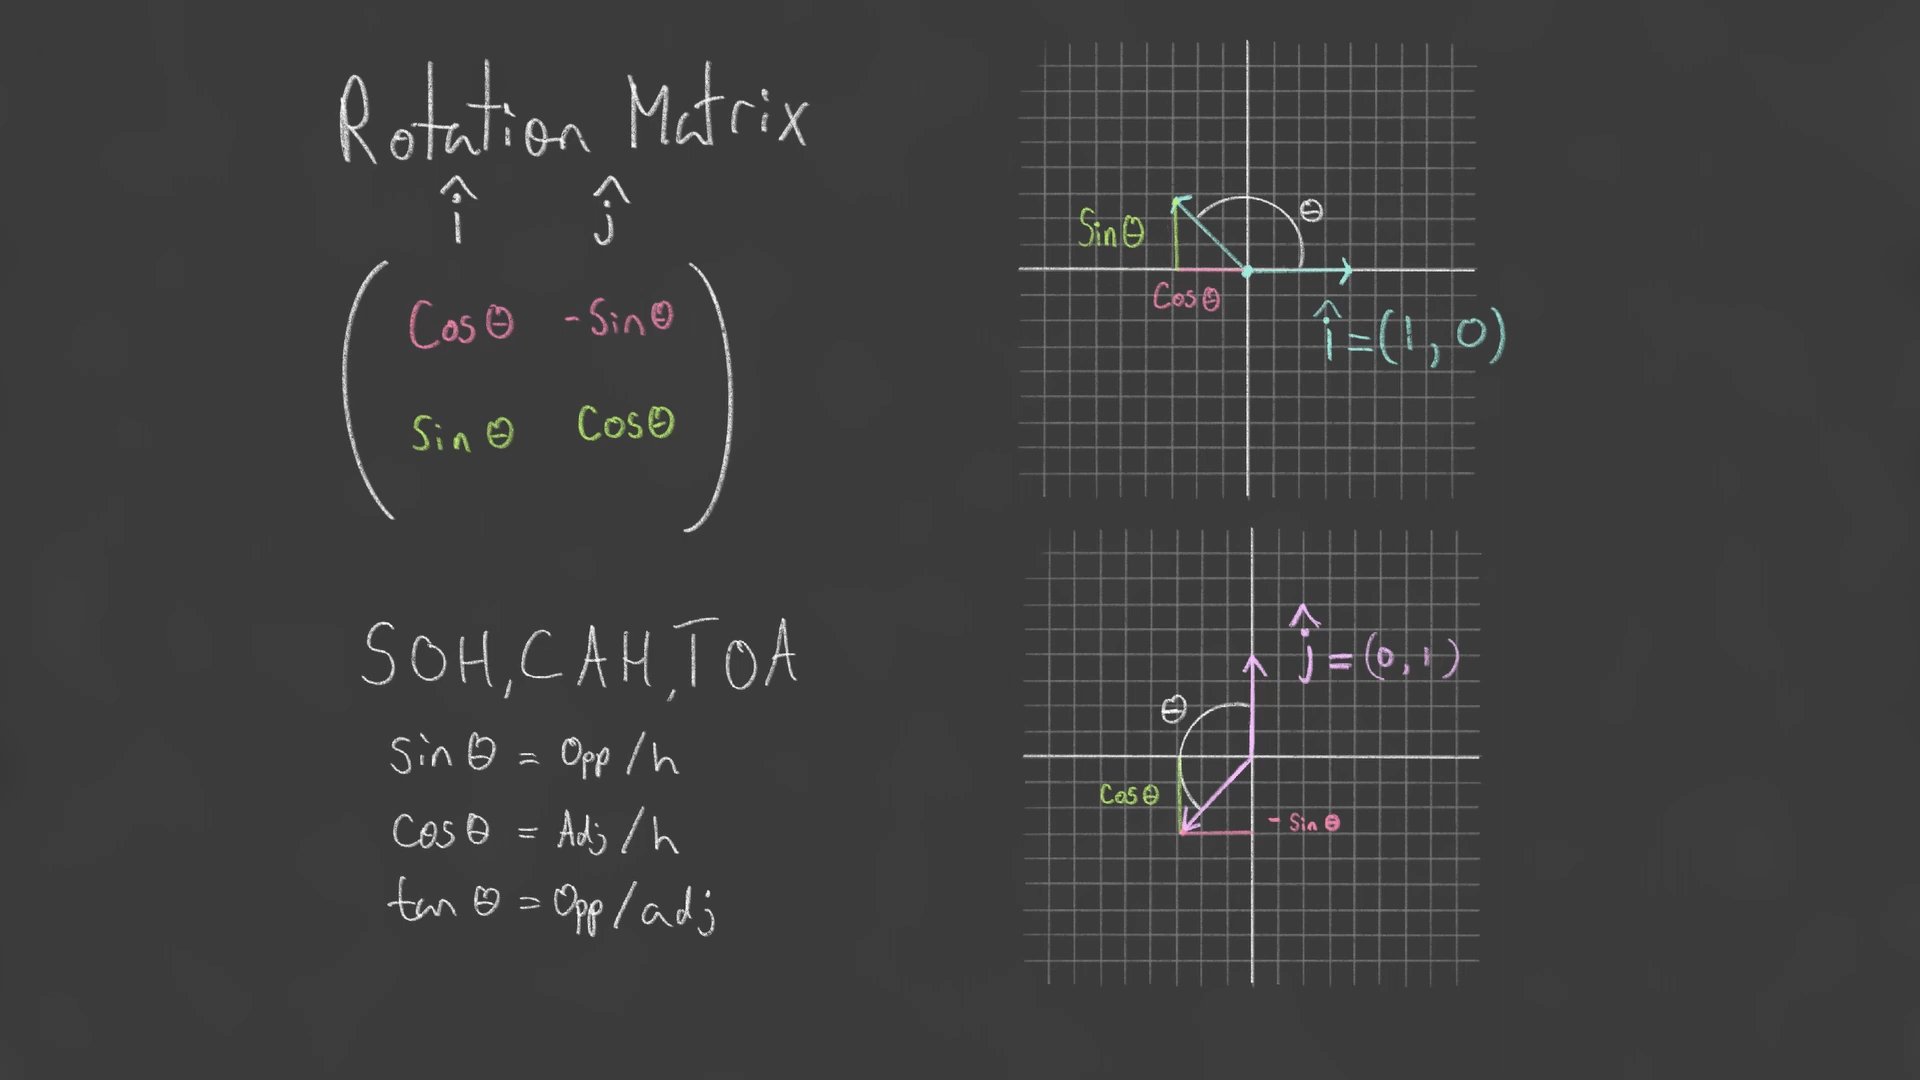 Rotation Matrix
î ĵ
Cosθ -Sinθ
Sinθ Cosθ
SOH, CAH, TOA
Sinθ = Opp/h
Cosθ = Adj/h
tanθ = Opp/adj
θ
Sinθ
Cosθ
î = (1, 0)
ĵ = (0, 1)
θ
Cosθ
- Sinθ